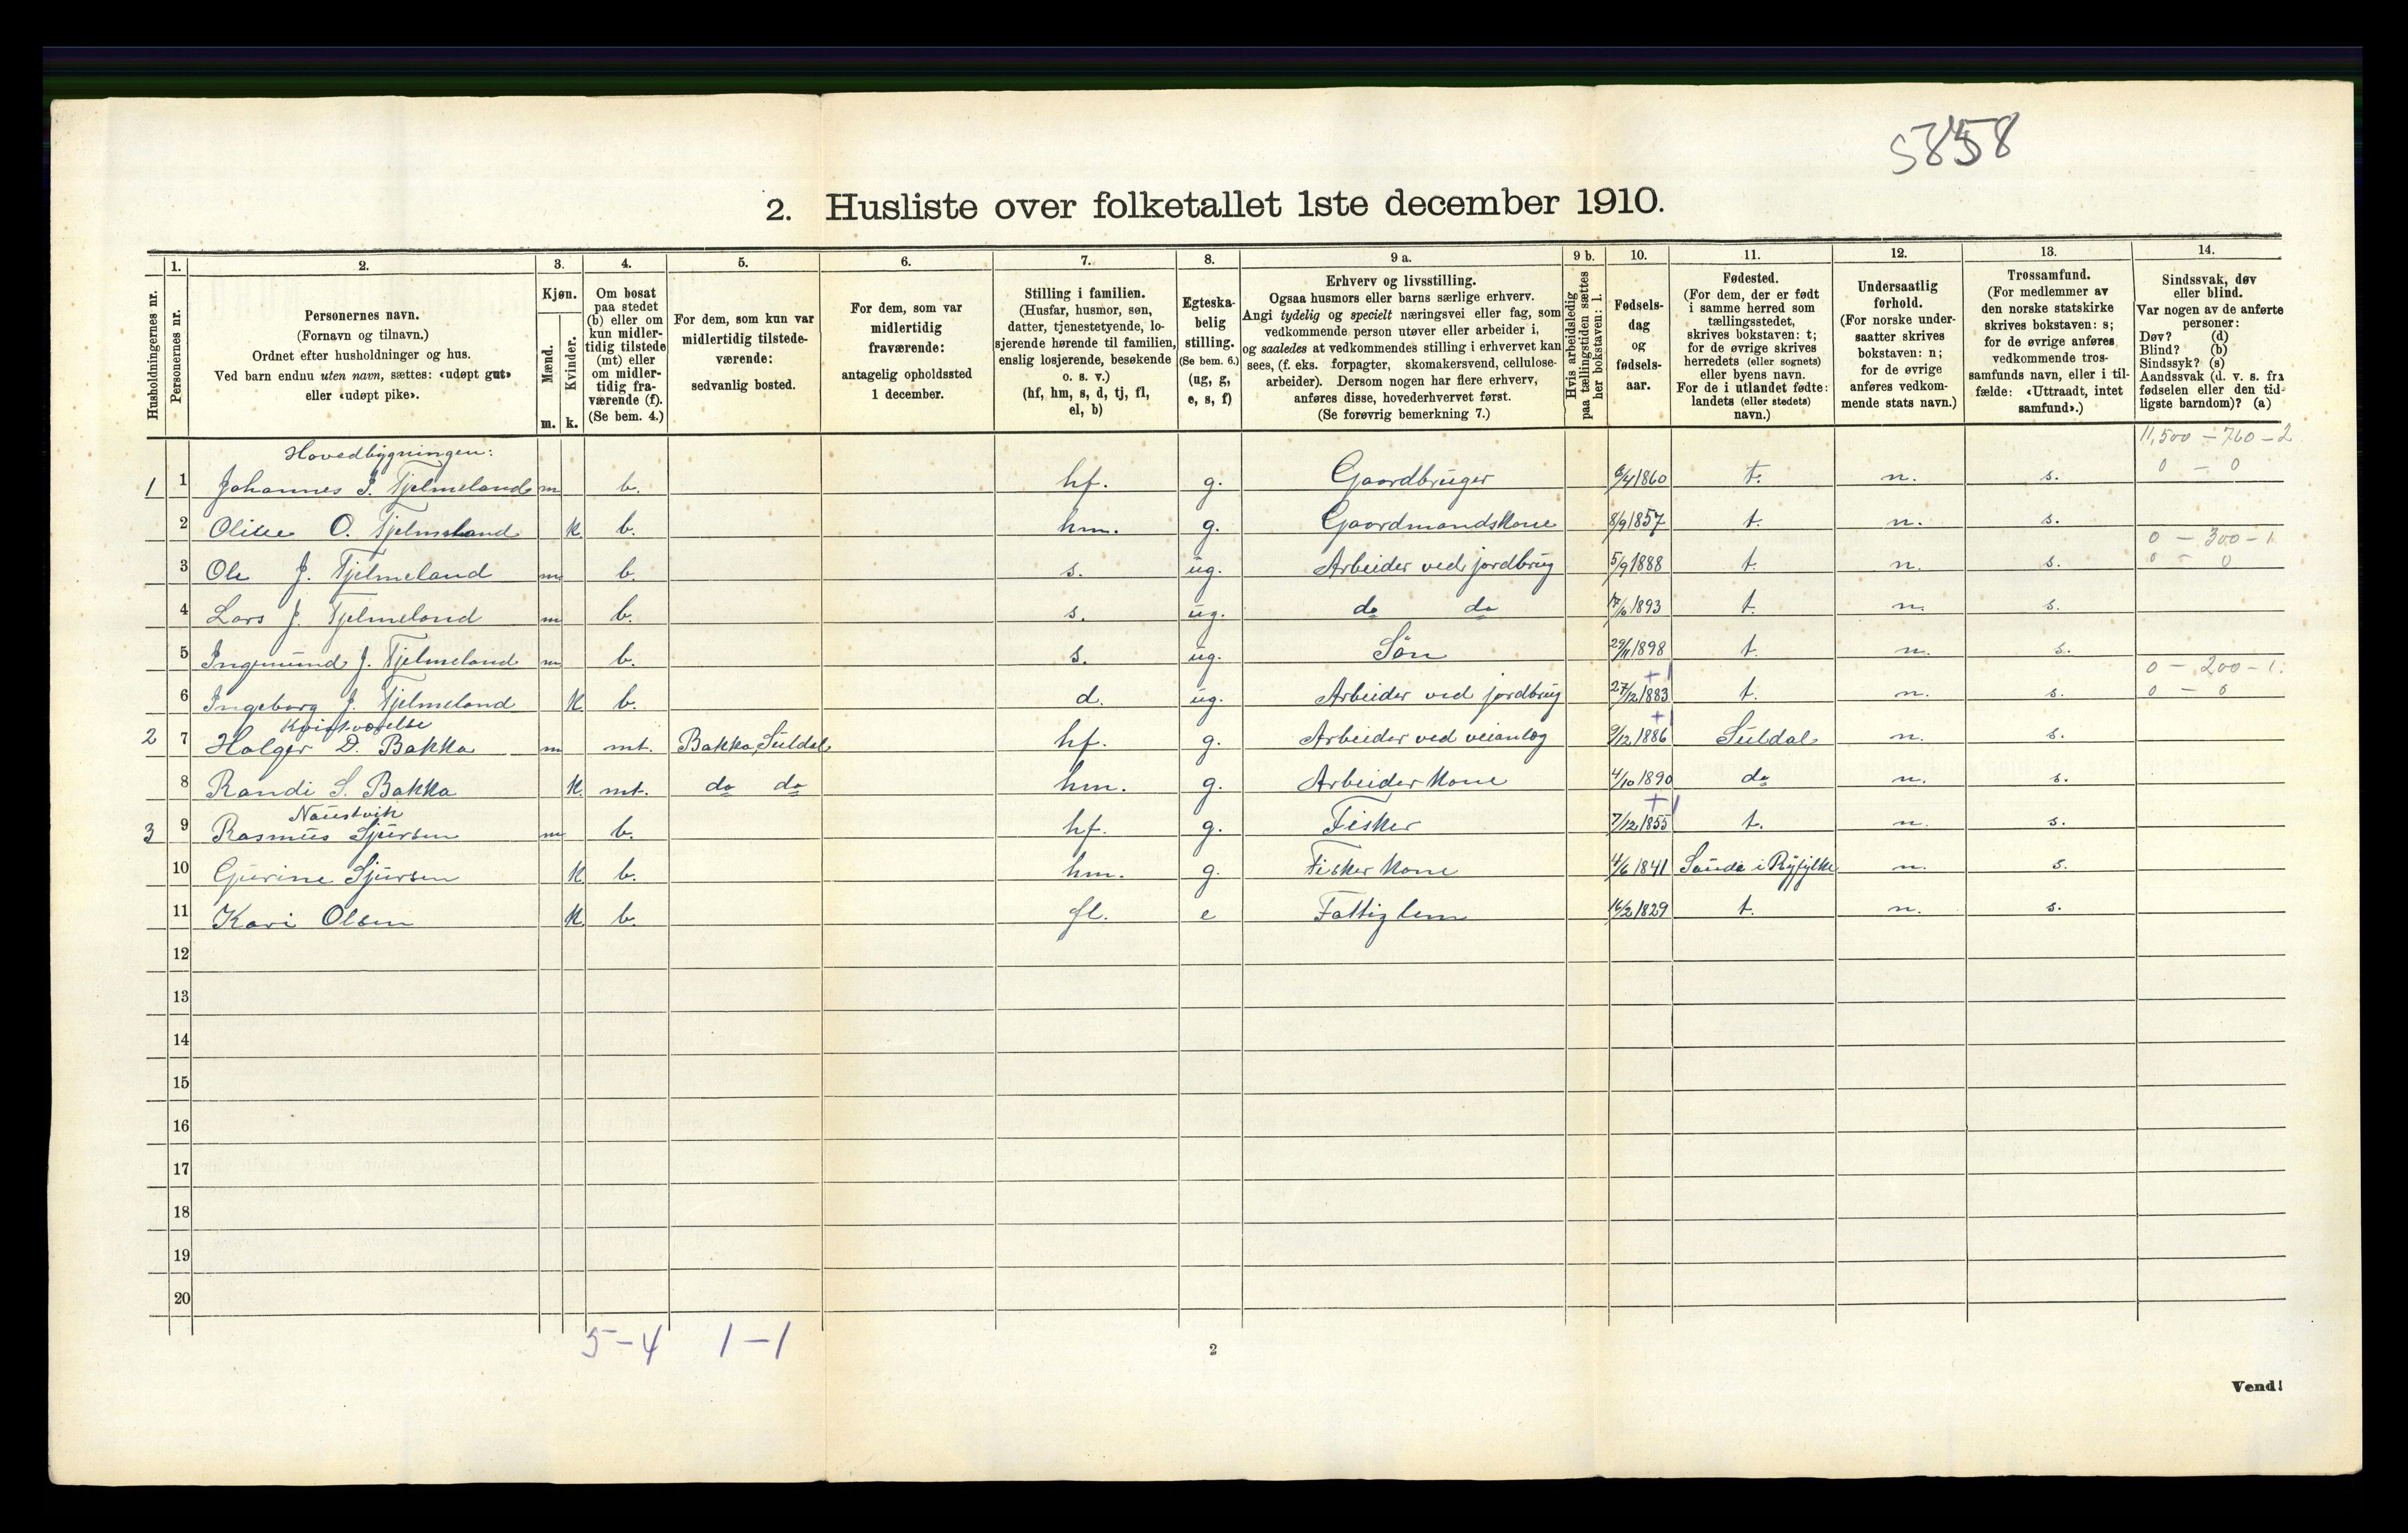 5858
2. Husliste over folketallet 1ste december 1910.
Husholdningernes nr.
1.
Personernes nr.
2.
Personernes navn.
(Fornavn og tilnavn.)
Ordnet efter husholdninger og hus.
Ved barn endnu uten navn, sættes: «udøpt gut»
eller «udøpt pike».
3.
Kjøn.
Mænd.
Kvinder.
m. k.
4.
Om bosat
paa stedet
(b) eller om
kun midler-
tidig tilstede
(mt) eller
om midler-
tidig fra-
værende (f).
(Se bem. 4.)
5.
For dem, som kun var
midlertidig tilstede-
værende:
sedvanlig bosted.
6.
For dem, som var
midlertidig
fraværende:
antagelig opholdssted
1 december.
7.
Stilling i familien.
(Husfar, husmor, søn,
datter, tjenestetyende, lo-
sjerende hørende til familien,
enslig losjerende, besøkende
o. s. v.)
(hf, hm, s, d, tj, fl,
el, b)
8.
Egteska-
belig
stilling.
(Se bem. 6.)
(ug, g,
e, s, f)
9 a.
Erhverv og livsstilling.
Ogsaa husmors eller barns særlige erhverv.
Angi tydelig og specielt næringsvei eller fag, som
vedkommende person utøver eller arbeider i,
og saaledes at vedkommendes stilling i erhvervet kan
sees, (f. eks. forpagter, skomakersvend, cellulose-
arbeider). Dersom nogen har flere erhverv,
anføres disse, hovederhvervet først.
(Se forøvrig bemerkning 7.)
9 b.
Hvis arbeidsledig
paa tællingstiden sættes
her bokstaven: l.
10.
Fødsels-
dag
og
fødsels-
aar.
11.
Fødested.
(For dem, der er født
i samme herred som
tællingsstedet,
skrives bokstaven: t;
for de øvrige skrives
herredets (eller sognets)
eller byens navn.
For de i utlandet fødte:
landets (eller stedets)
navn.)
12.
Undersaatlig
forhold.
(For norske under-
saatter skrives
bokstaven: n;
for de øvrige
anføres vedkom-
mende stats navn.)
13.
Trossamfund.
(For medlemmer av
den norske statskirke
skrives bokstaven: s;
for de øvrige anføres
vedkommende tros-
samfunds navn, eller i til-
fælde: «Uttraadt, intet
samfund».)
14.
Sindssvak, døv
eller blind.
Var nogen av de anførte
personer:
Døv? (d)
Blind? (b)
Sindssyk? (s)
Aandssvak (d. v. s. fra
fødselen eller den tid-
ligste barndom)? (a)
11,500 - 760 - 2
Hovedbygningen:
1 1 Johannes J. Tjelmeland m b. hf. g. Gaardbruger 6/4 1860 t. n. s. 0 - 0
2 Oline O. Tjelmeland k b. hm. g. Gaardmandskone 8/9 1857 t. n. s.
0 - 300 - 1
3 Ole J. Tjelmeland m b. s. ug. Arbeider ved jordbrug 5/9 1888 t. n. s. 0 - 0
4 Lars J. Tjelmeland m b. s. ug. do do 17/6 1893 t. n. s.
5 Ingemund J. Tjelmeland m b. s. ug. Søn 29/11 1898 t. n. s.
+1 0 - 200 - 1.
6 Ingeborg J. Tjelmeland k b. d. ug. Arbeider ved jordbrug 27/12 1883 t. n. s. 0 - 0
Kvistværelse +1
2 7 Holger D. Bakka m mt. Bakka, Suldal hf. g. Arbeider ved veianlæg 9/12 1886 Suldal n. s.
8 Randi S. Bakka k mt. do do hm. g. Arbeider kone 4/10 1890 do n. s.
Naustvik +1
3 9 Rasmus Sjursen m b. hf. g. Fisker 7/12 1855 t. n. s.
10 Gurine Sjursen k b. hm. g. Fisker kone 4/6 1841 Saude i Ryfylke n. s.
11 Kari Olsen k b. fl. e Fattiglem 16/2 1829 t. n. s.
12
13
14
15
16
17
18
19
20
5-4 1-1
2
Vend!